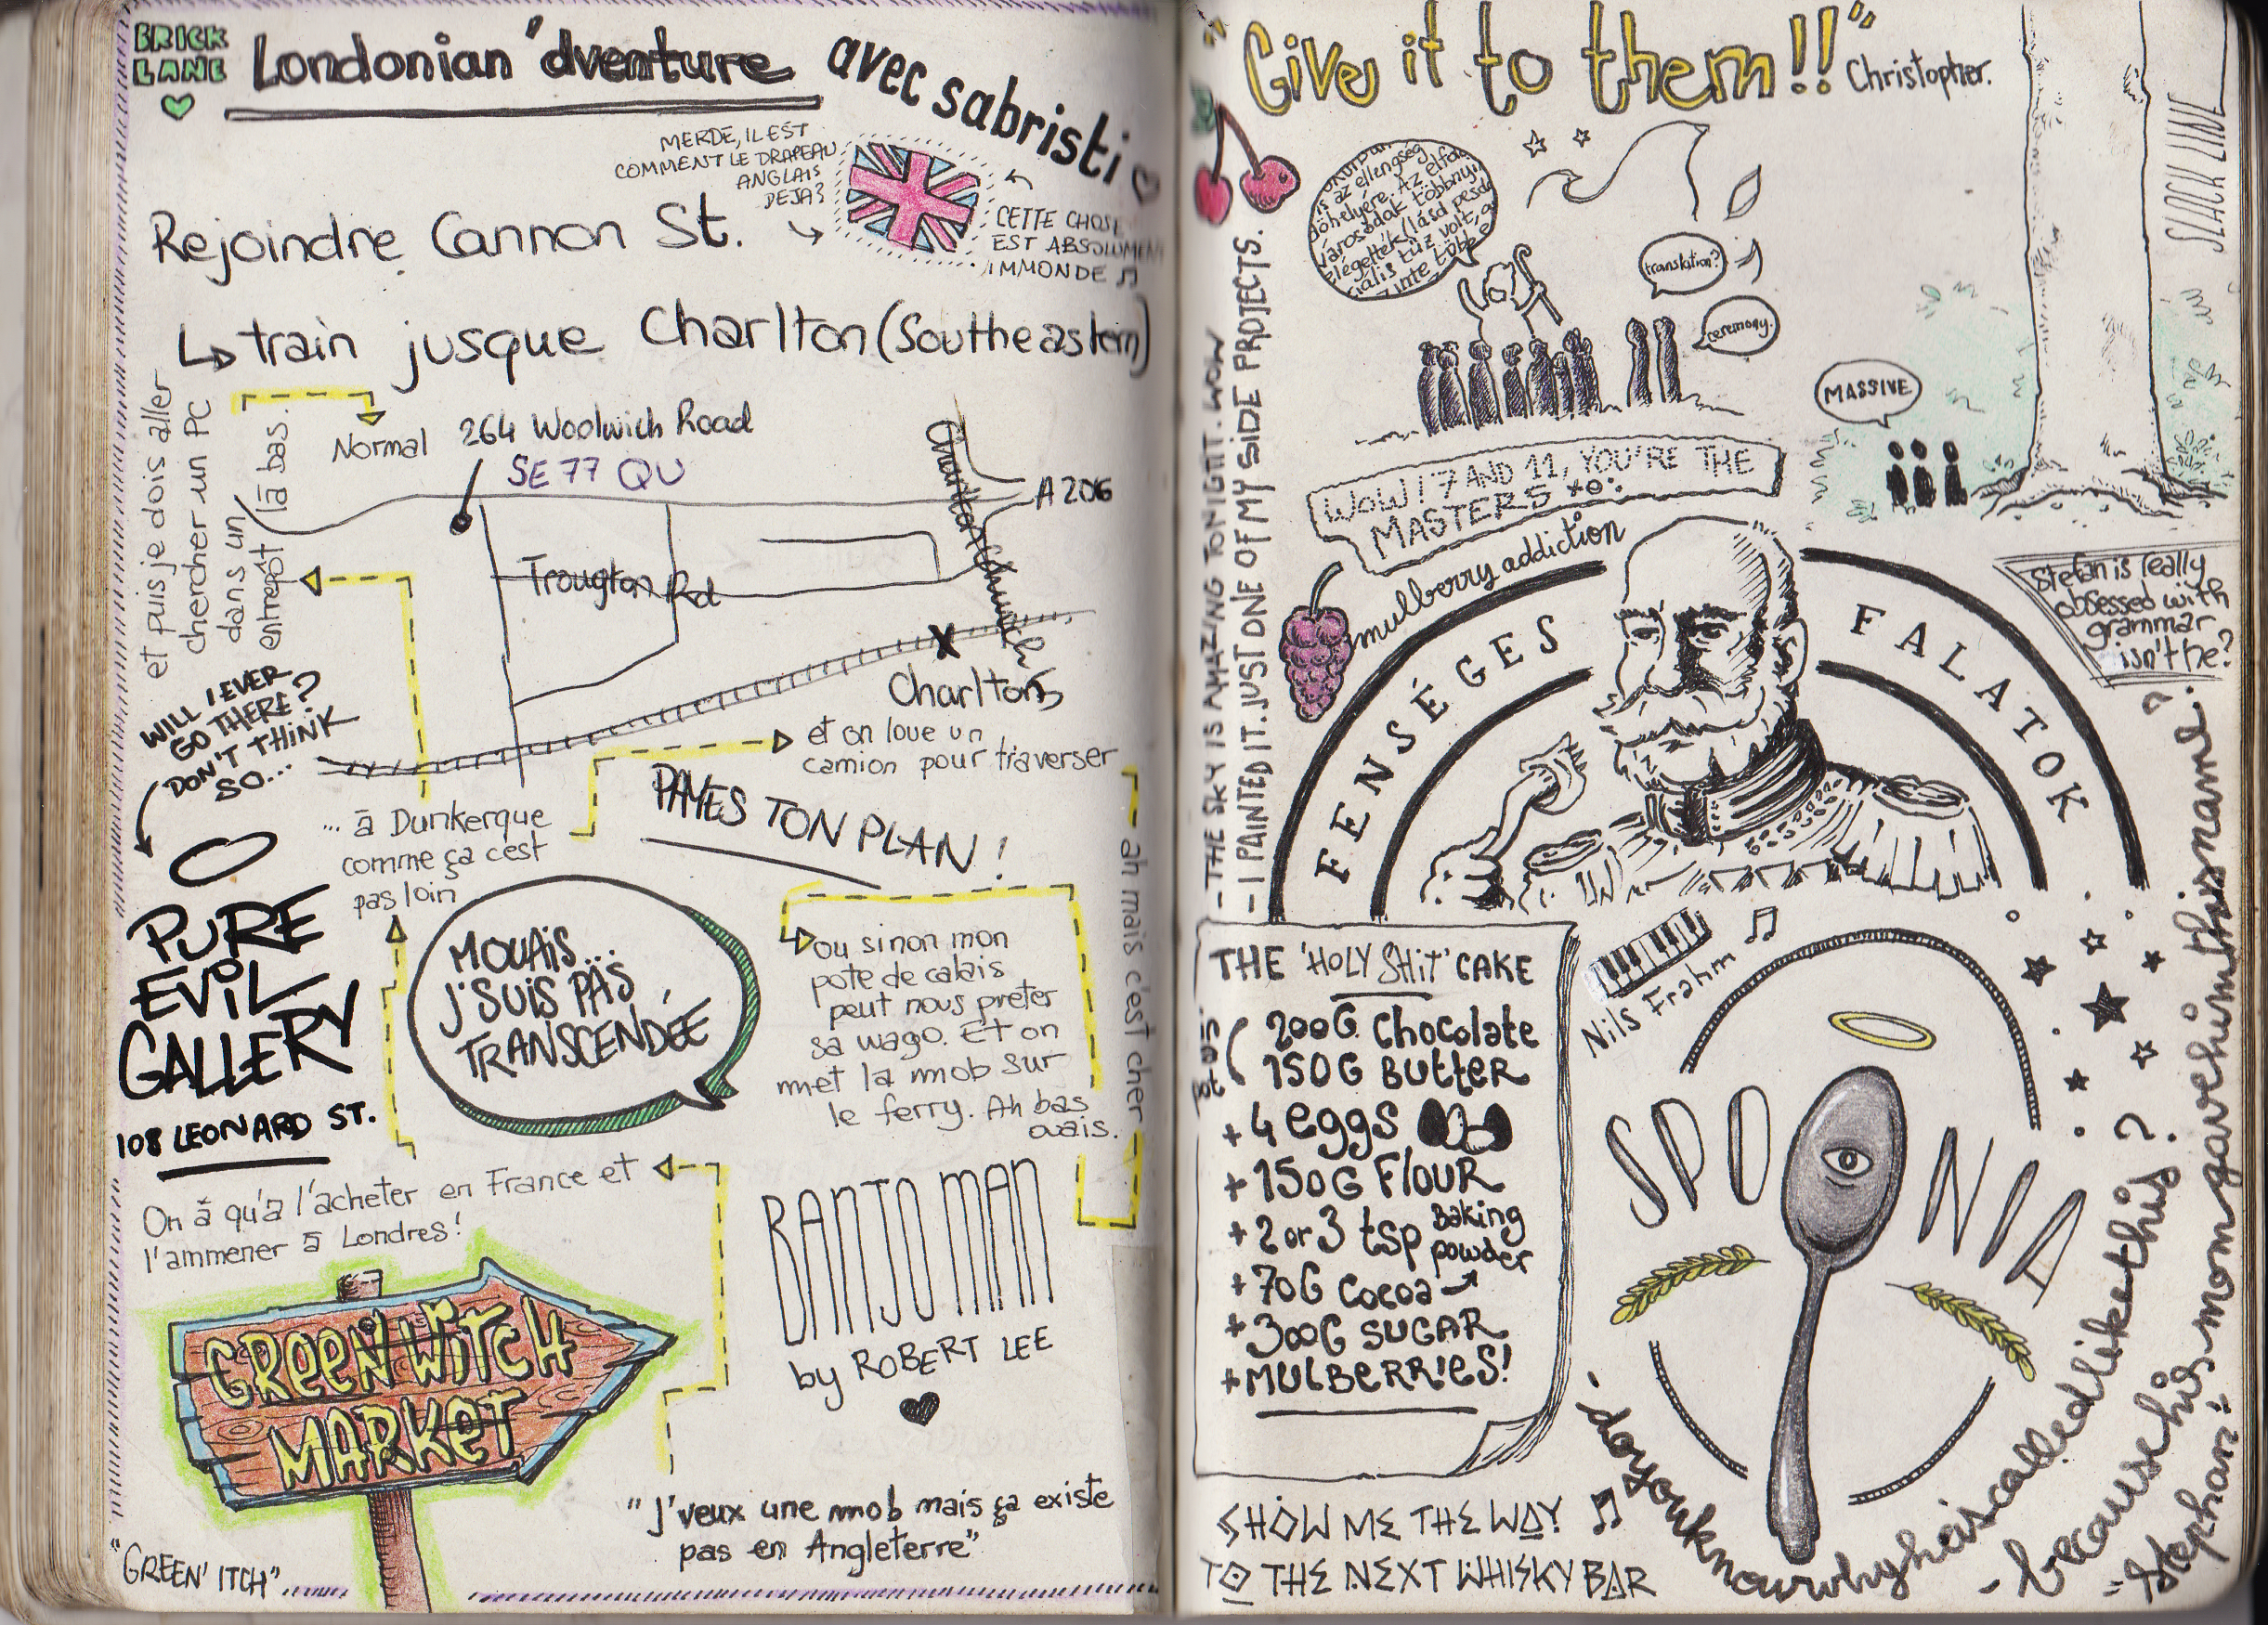 BRICK
LANE
Londonian 'dventure avec sabristi
MERDE, IL EST
COMMENT LE DRAPEAU
ANGLAIS
DEJA?
CETTE CHOSE
EST ABSOLUMENT
IMMONDE
Rejoindre Cannon St.
train jusque Charlton (Southeastern)
et puis je dois aller
chercher un PC
dans un
entrepôt là bas.
Normal
264 Woolwich Road
SE77QU
A206
Charlton Church
Trougton Rd
Charlton
WILL I EVER
GO THERE?
DON'T THINK
SO...
et on loue un
camion pour traverser
... à Dunkerque
comme ça c'est
pas loin
PAYES TON PLAN!
ah mais c'est cher
PURE
EVIL
GALLERY
108 LEONARD ST.
MOUAIS...
J'SUIS PAS
TRANSCENDÉE
ou sinon mon
pote de calais
peut nous preter
sa wago. Et on
met la mob sur
le ferry. Ah bas
ouais.
On à qu'à l'acheter en France et
l'ammener à Londres!
BANJO MAN
by ROBERT LEE
GREEN'WITCH
MARKET
"J'veux une mob mais ça existe
pas en Angleterre"
"GREEN'ITCH"
"Give it to them!!"
Christopher.
is az ellengség
Az elfo
városodak többnyi
elégették (lásd pesda
tűz volt, a
translation?
ceremony.
MASSIVE
- THE SKY IS AMAZING TONIGHT. WOW
- I PAINTED IT. JUST ONE OF MY SIDE PROJECTS.
WOW! 7 AND 11, YOU'RE THE
MASTERS
mulberry addiction
FENSÉGES FALATOK
Stefan is really
obsessed with
grammar
isn't he?
THE 'HOLY SHiT' CAKE
200G Chocolate
150G Butter
+ 4 eggs
+ 150G Flour
+ 2 or 3 tsp Baking
powder
+ 70G Cocoa
+ 300G SUGAR
+ MULBERRIES!
Nils Frahm
SPOONIA
SHOW ME THE WAY
TO THE NEXT WHISKY BAR
- doyouknowwhyheiscalledlikethis?
- becausehismomgavehimthisname.
"Stephan"